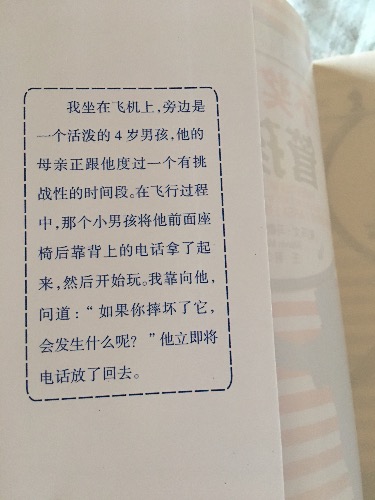 我坐在飞机上，旁边是
一个活泼的4岁男孩，他的
母亲正跟他度过一个有挑
战性的时间段。在飞行过程
中，那个小男孩将他前面座
椅后靠背上的电话拿了起
来，然后开始玩。我靠向他，
问道：“如果你摔坏了它，
会发生什么呢？”他立即将
电话放了回去。
奖
管孩